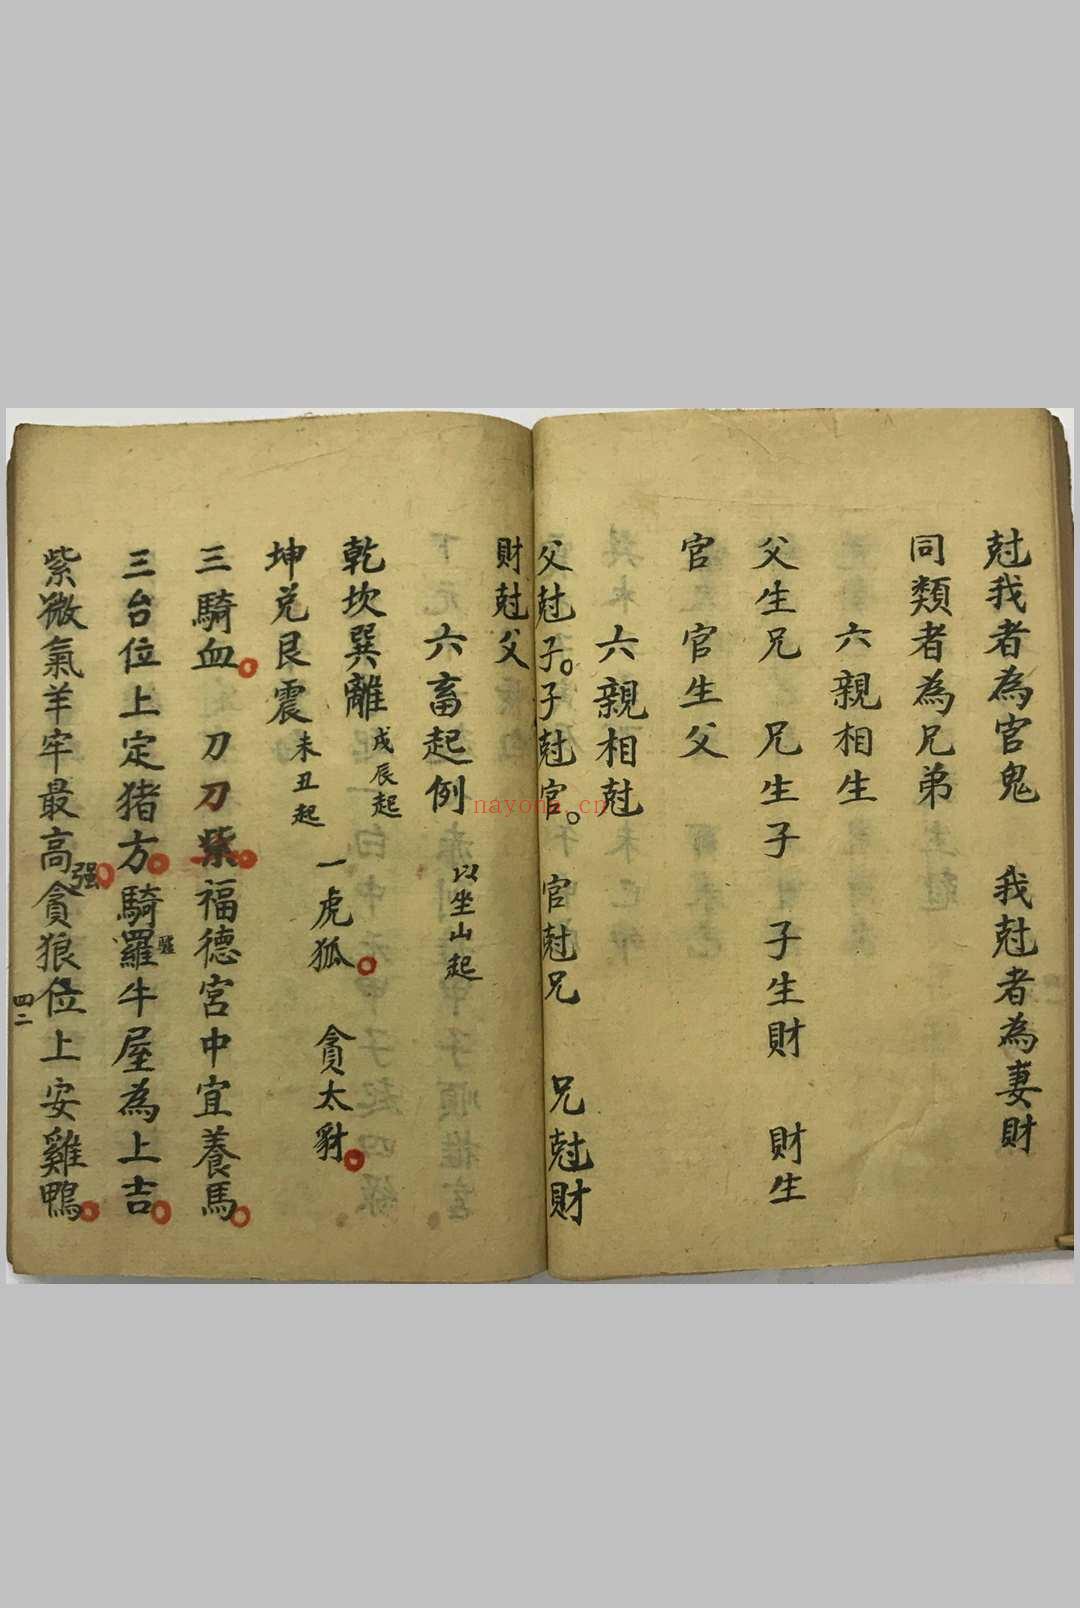 尅我者為官鬼　我尅者為妻財
同類者為兄弟
六親相生
父生兄　兄生子　子生財　財生
官　官生父
六親相尅
父尅子。子尅官。官尅兄　兄尅財
財尅父
六畜起例　以坐山起
乾坎巽離　戌辰起　一虎狐　貪太豺
坤兌艮震　未丑起
三騎血　刀刀紫福德宮中宜養馬
三台位上定猪方騎羅牛屋為上吉
紫微氣羊牢最高强貪狼位上安雞鴨
四二
nayona.cn